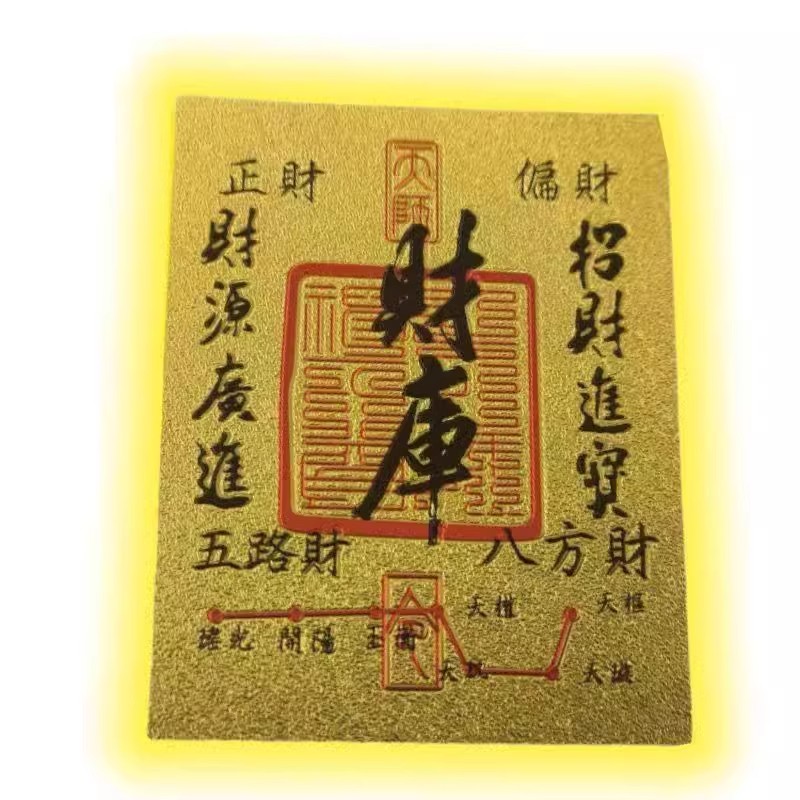 天師
正財
偏財
財庫
招財進寶
財源廣進
五路財
八方財
瑤光 開陽 玉衡 天權
天璣 天璇 天樞